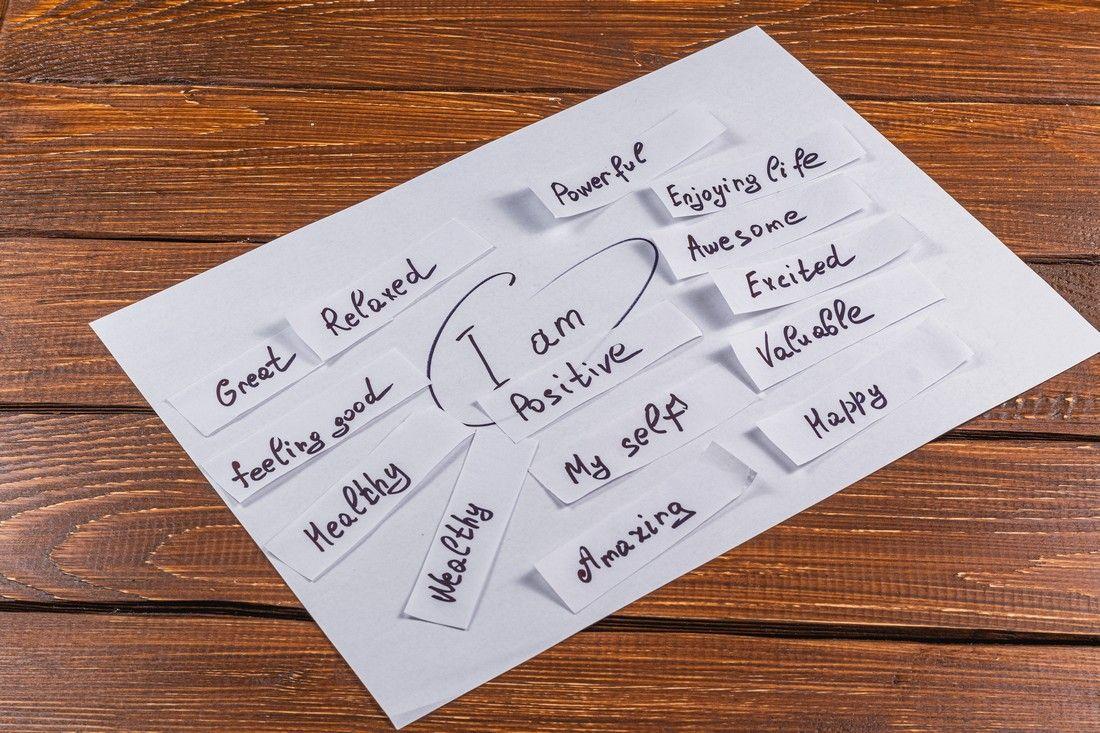 Powerful
Enjoying life
Awesome
Relaxed
Excited
I am
Valuable
Great
Positive
feeling good
My self
Happy
Healthy
Wealthy
Amazing